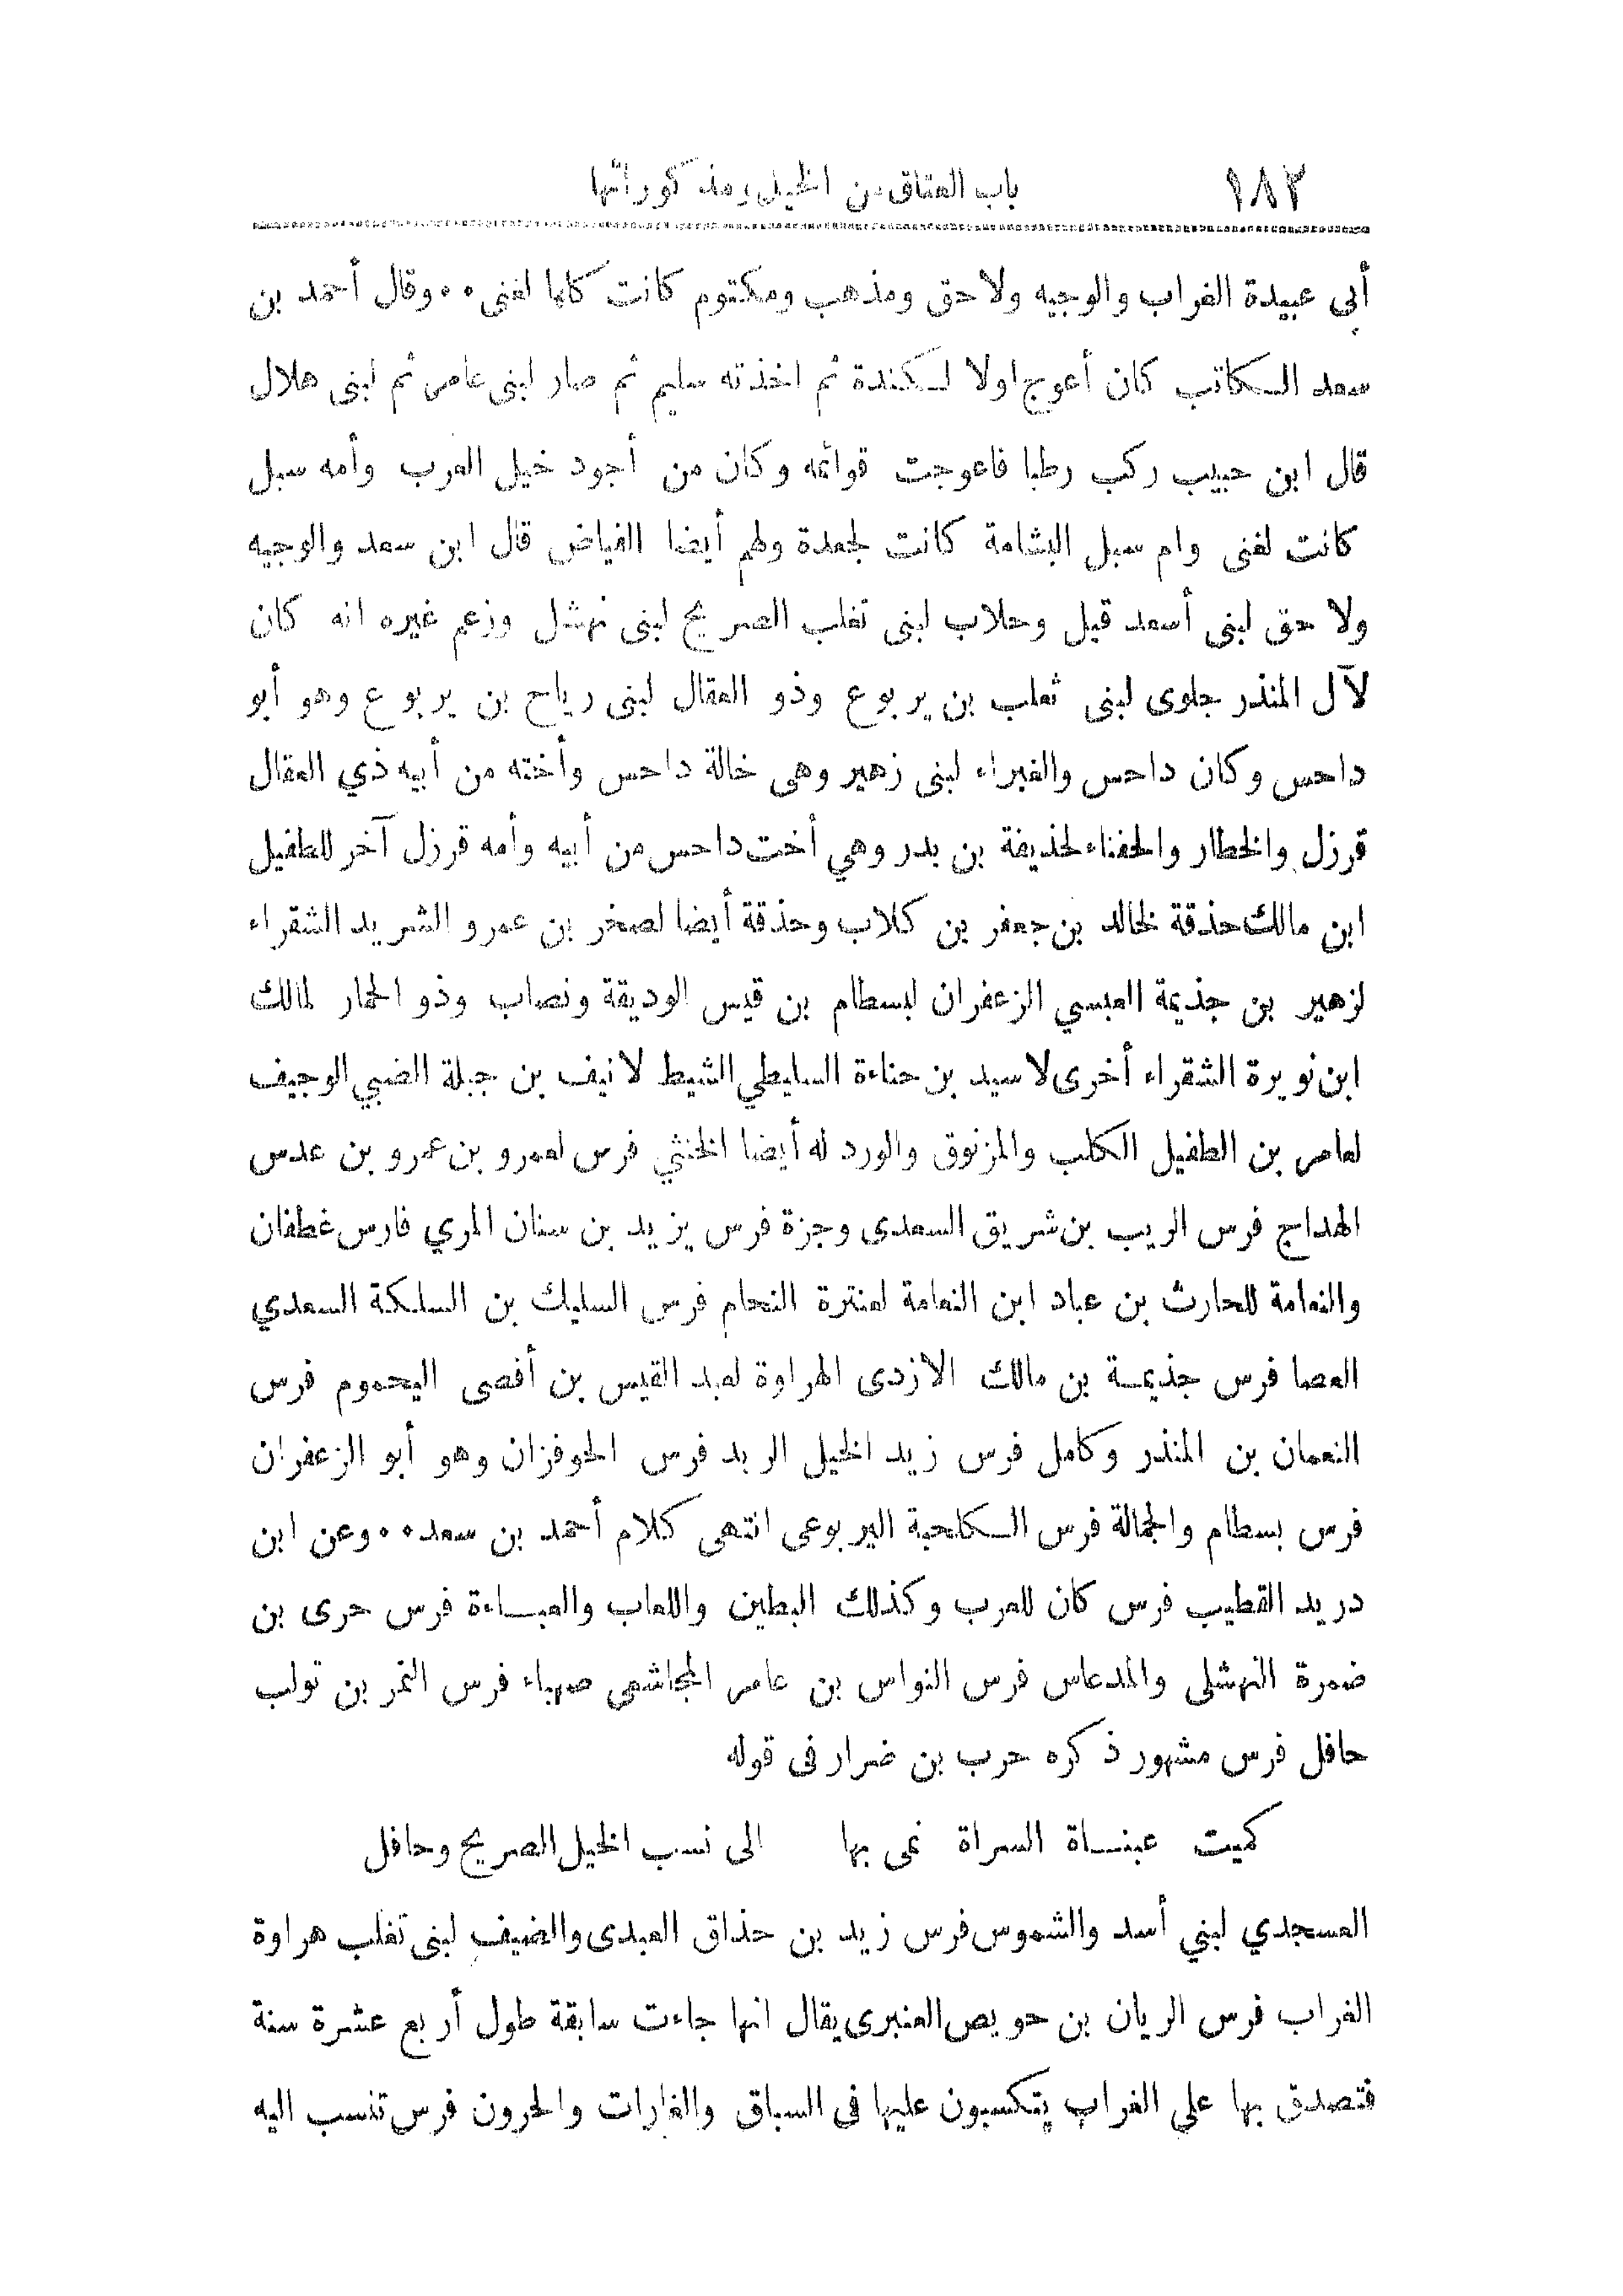 ١٨٢ باب العتاق من الخيل ومذكوراتها
أبي عبيدة الغراب والوجيه ولاحق ومذهب ومكتوم كانت كلها لغنى ٠٠ وقال أحمد بن
سعد الكاتب كان أعوج اولا لكندة ثم اخذته سليم ثم صار لبنى عامر ثم لبنى هلال
قال ابن حبيب ركب رطبا فاعوجت قوائمه وكان من أجود خيل العرب وأمه سبل
كانت لغنى وام سبل البشامة كانت لجعدة ولهم أيضا الفياض قال ابن سعد والوجيه
ولاحق لبنى أسعد قيل وحلاب لبنى تغلب الصريح لبنى نهشل وزعم غيره انه كان
لآل المنذر جلوى لبنى ثعلب بن يربوع وذو العقال لبنى رياح بن يربوع وهو أبو
داحس وكان داحس والغبراء لبنى زهير وهى خالة داحس وأخته من أبيه ذي العقال
قرزل والخطار والحفناء لحذيفة بن بدر وهي أخت داحس من أبيه وأمه قرزل آخر للطفيل
ابن مالك حذقة لخالد بن جعفر بن كلاب وحذقة أيضا لصخر بن عمرو الشريد الشقراء
لزهير بن جذيمة العبسي الزعفران لبسطام بن قيس الوديقة ونصاب وذو الخمار لمالك
ابن نويرة الشقراء أخرى لاسيد بن حناءة السليطي الشيط لانيف بن جبلة الضبي الوجيف
لعامر بن الطفيل الكلب والمزنوق والورد له أيضا الخنثي فرس لعمرو بن عمرو بن عدس
الهداج فرس الريب بن شريق السعدى وجزة فرس يزيد بن سنان المري فارس غطفان
والنعامة للحارث بن عباد ابن النعامة لعنترة النحام فرس السليك بن السلكة السعدي
العصا فرس جذيمة بن مالك الازدى الهراوة لعبد القيس بن أفصى اليحموم فرس
النعمان بن المنذر وكامل فرس زيد الخيل الربد فرس الحوفزان وهو أبو الزعفران
فرس بسطام والجمالة فرس الكلحبة اليربوعى انتهى كلام أحمد بن سعد ٠٠ وعن ابن
دريد القطيب فرس كان للعرب وكذلك البطين واللعاب والعباءة فرس حرى بن
ضمرة النهشلى والمدعاس فرس النواس بن عامر المجاشعي صهباء فرس النمر بن تولب
حافل فرس مشهور ذكره حرب بن ضرار فى قوله
كميت عبناة السراة نمى بها الى نسب الخيل الصريح وحافل
العسجدي لبني أسد والشموس فرس زيد بن حذاق العبدى والضيف لبنى تغلب هراوة
الغراب فرس الريان بن حويص العنبرى يقال انها جاءت سابقة طول أربع عشرة سنة
فتصدق بها على الغراب يتكسبون عليها فى السباق والغارات والحرون فرس تنسب اليه